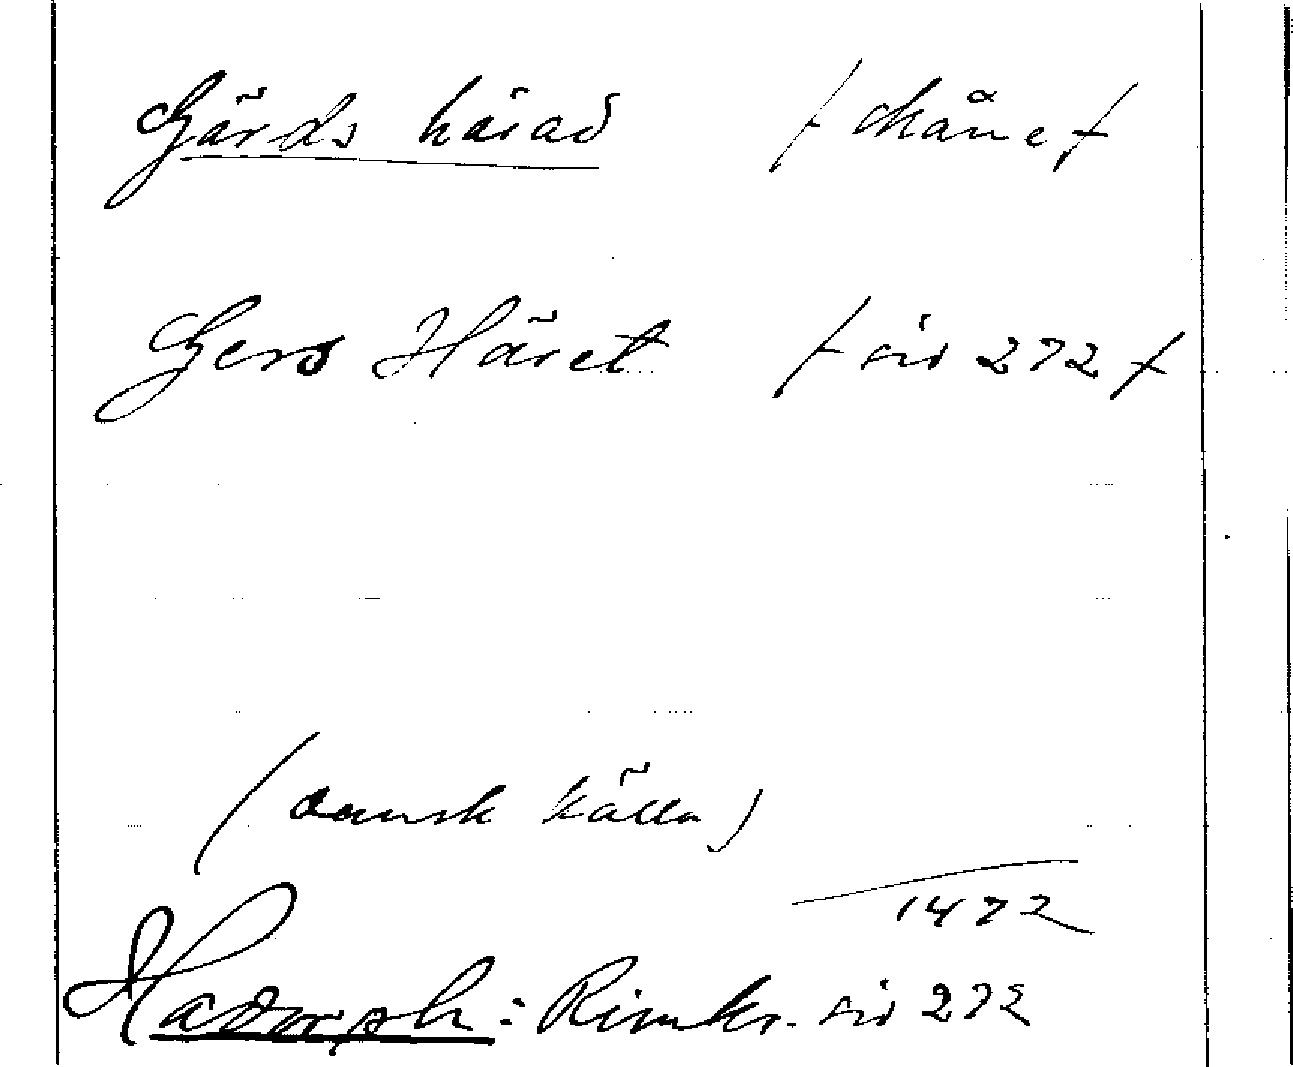 Gärds härad / Skåne /
Gers Häret / sid 272 /
(dansk källa)
1472
Hadorph: Rimkr. sid 272